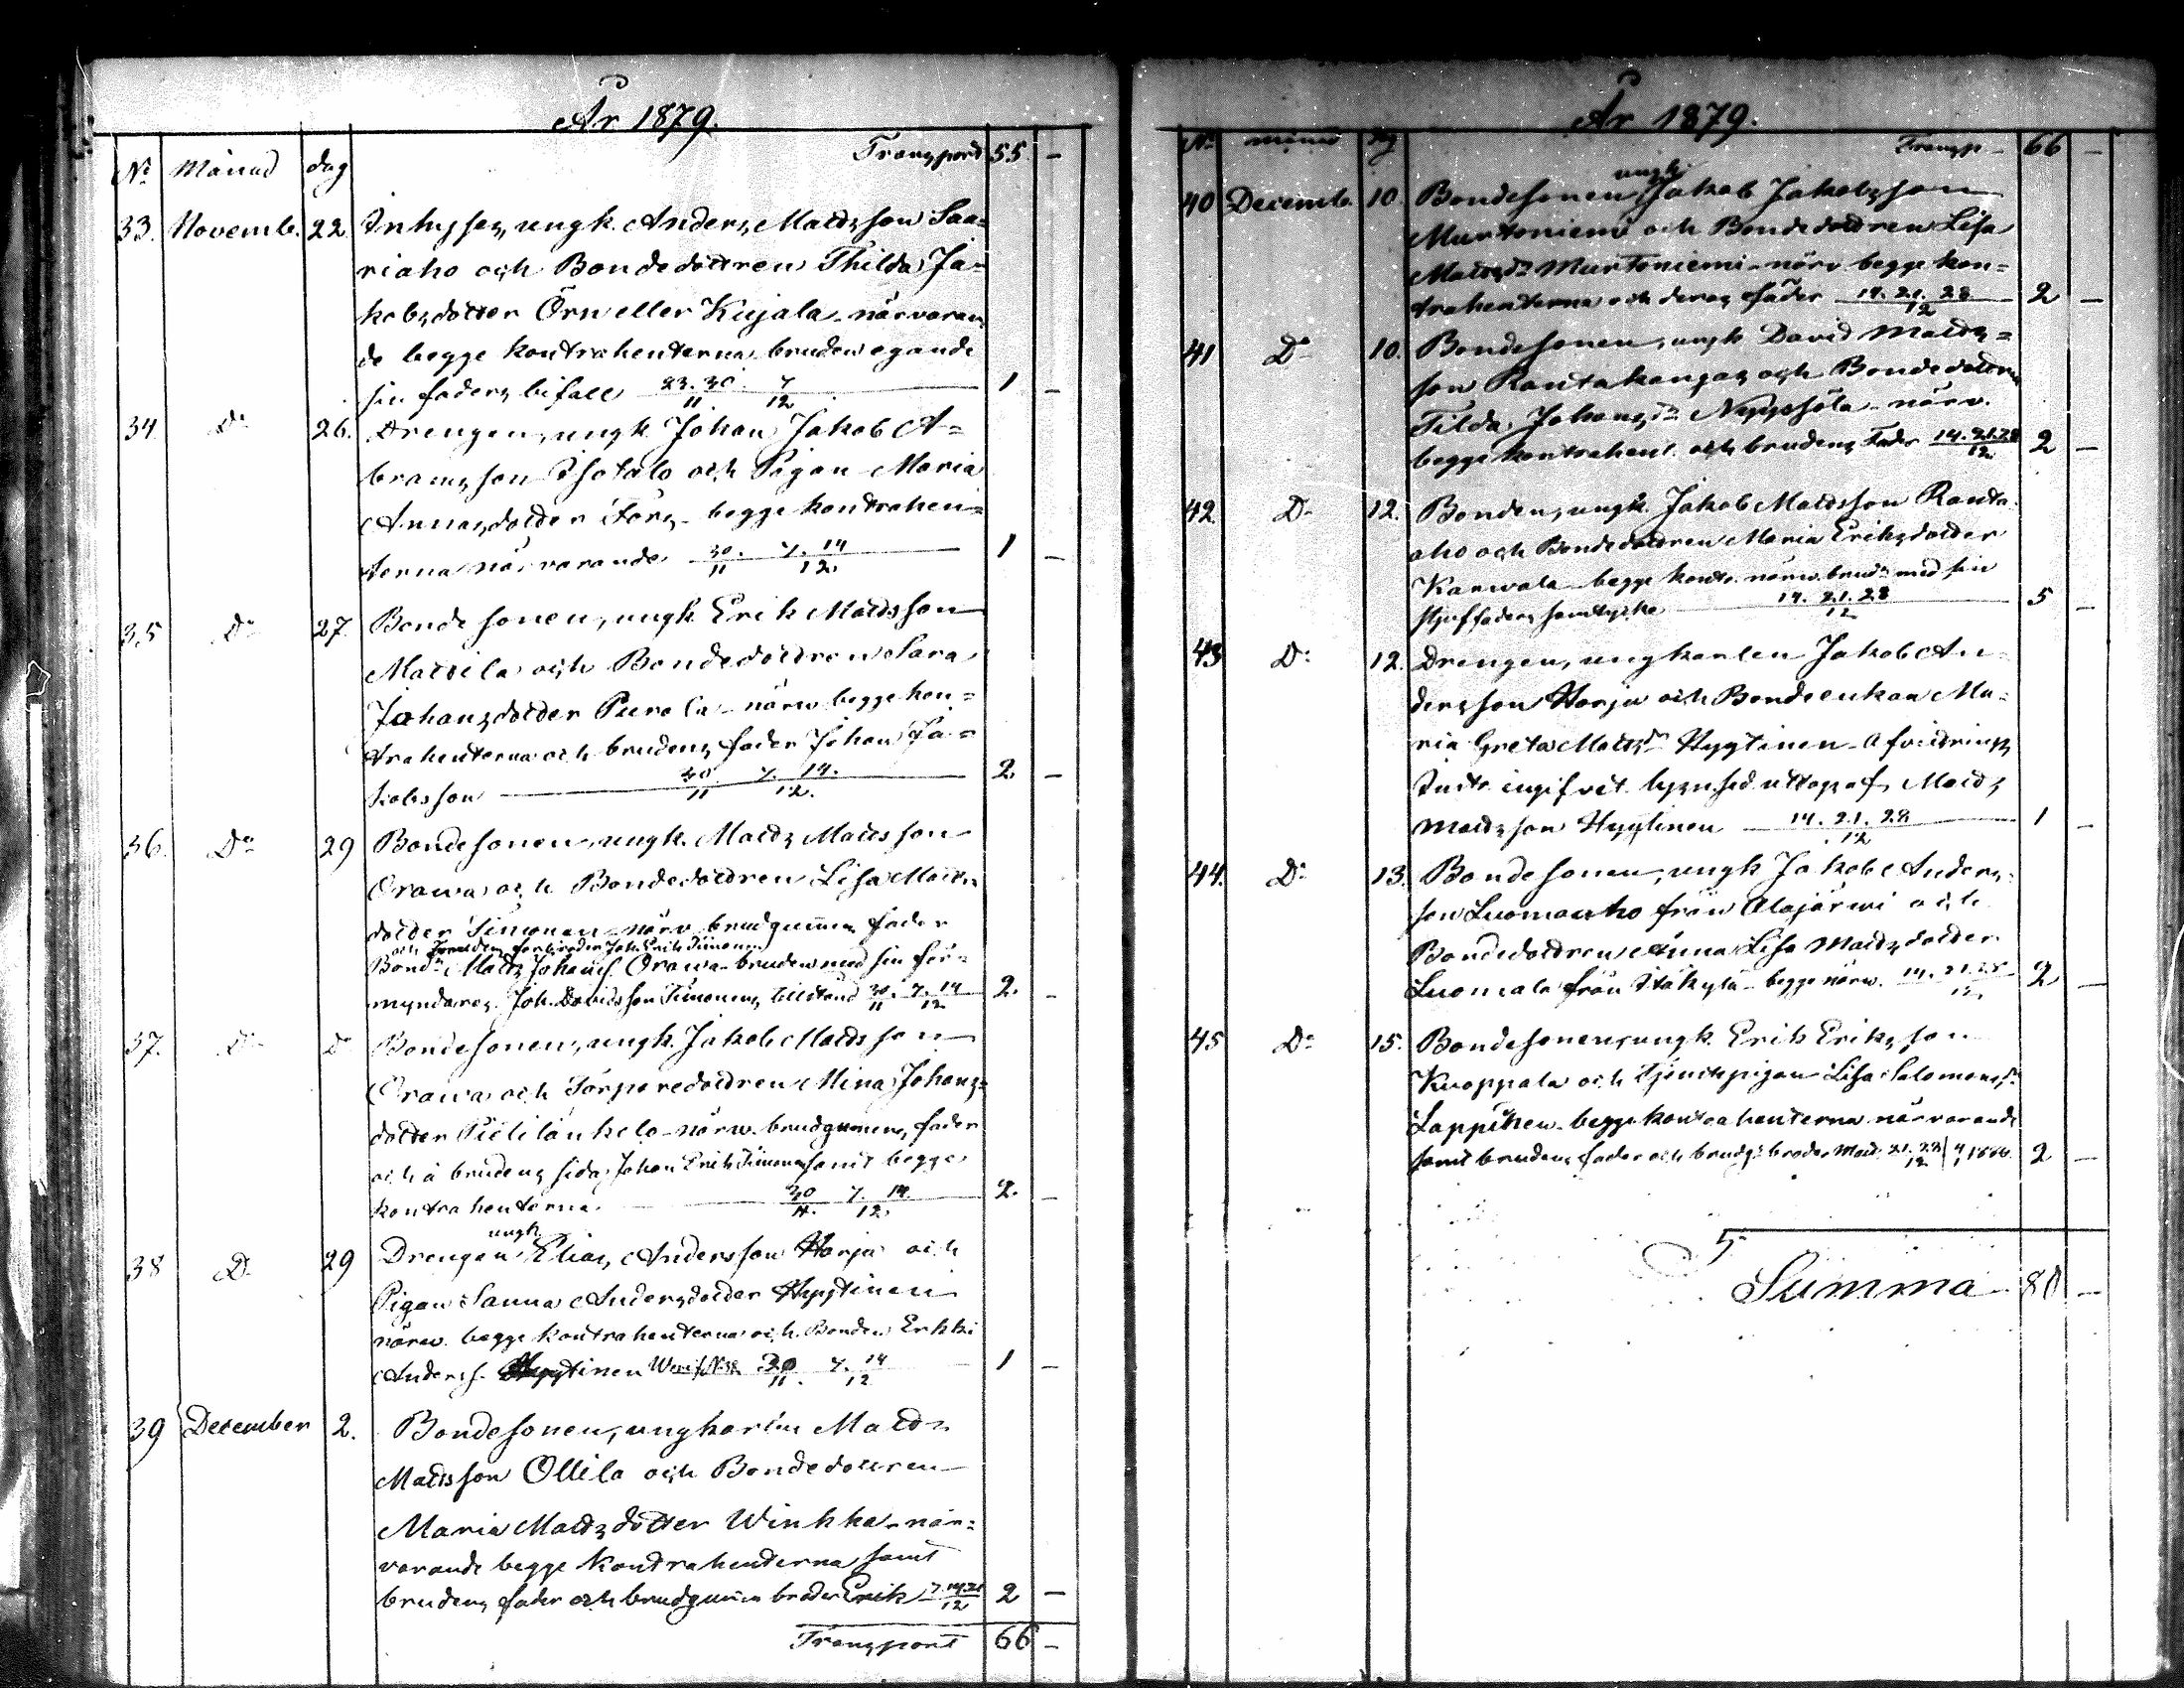 År 1879.
No Månad dag Transport 55 -
33. Novemb. 22 Inhyses, ungk. Anders Mattsson Saa-
riaho och Bondedottren Thilda Ja-
kobsdotter Örn eller Kujala - närvaran
de begge kontrahenterna bruden egande
sin faders bifall 23. 30. 7 1 -
11 12
34 Do 26. Drengen, ungk. Johan Jakob A-
bramsson Isotalo och Pigan Maria
Annasdotter Fors - begge kontrahen-
terna närvarande 30. 7. 14 1 -
11 12
35 Do 27. Bondesonen, ungk. Erik Mattsson
Mattila och Bondedottren Sara
Johansdotter Purola - närv. begge kon-
trahenterna och brudens fader Johan Ja-
kobsson 30 7. 14. 2 -
11 12.
36. Do 29 Bondesonen, ungk. Matts Mattsson
Orawa och Bondedottren Lisa Matts
dotter Timonen - närv. brudgummens fader
och farbroder Joh. Erik Timonen
Bond. Matts Johans. Orawa - bruden med sin för-
myndares Joh. Davidsson Timonens tillstånd 30. 7. 14 2. -
11 12
37. Do Do Bondesonen, ungk. Jakob Mattsson
Orawa och Torparedottren Mina Johans-
dotter Pietilänkelo - närv. brudgummens fader
och å brudens sida Johan Erik Timonen samt begge
kontrahenterna. 30 7. 14 2. -
11. 12.
ungk
38 D 29 Drengen Elias Andersson Harju och
Pigan Sanna Andersdotter Hyytinen
närv. begge kontrahenterna och Bonden Erkki
Anderss. Hyytinen 30 7. 14 1 -
11. 12
39 December 2. Bondesonen, ungkarlen Matts
Mattsson Ollila och Bondedottren
Maria Mattsdotter Winkka - när-
varande begge kontrahenterna samt
brudens fader och brudgummens broder Erik 7. 14. 21 2 -
12
Transport 66 -
År 1879.
No månad dag Transp - 66 -
ungk
40 Decemb. 10. Bondesonen Jakob Jakobsson
Murtoniemi och Bondedottren Lisa
Mattsdr Murtoniemi - närv. begge kon-
trahenterna och deras fäder 14. 21. 28 2 -
12
41 Do 10. Bondesonen, ungk David Matts-
son Rantakangas och Bondedottren
Tilda Johansdr Nyyssölä - närv.
begge kontrahent. och brudens Fader 14. 21. 28 2 -
12
42. D 12. Bonden, ungk. Jakob Mattsson Ranta
aho och Bondedottren Maria Eriksdotter
Karwala - begge kontr. närv. brudn med sin
styffaders samtycke 14. 21. 28 5 -
12
43 D: 12. Drengen, ungkarlen Jakob An-
dersson Harju och Bondeenkan Ma-
ria Greta Mattsdr Hyytinen - Afvittrings
Instr. ingifvet af Matts
Mattsson Hyytinen 14. 21. 28 1 -
12
44. Do 13. Bondesonen, ungk Jakob Anders-
son Luomanaho från Alajärwi och
Bondedottren Anna Lisa Mattsdotter
Luomala från Itäkylä - begge närv. 14. 21. 28 2 -
12
45 Do 15. Bondesonen, ungk. Erik Eriksson
Kuoppala och Tjenstepigan Lisa Salomonsdr
Lappinen - begge kontrahenterna närvarande
samt brudens fader och brudgs broder Matts 21. 28 | 4 1880. 2 -
12 1
Summa 80 -